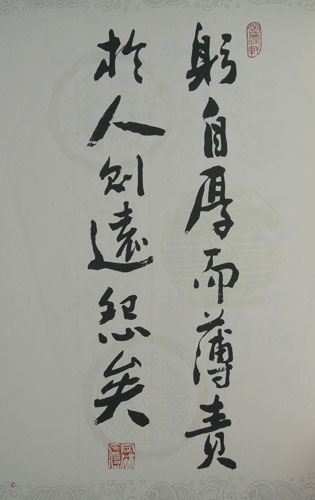 躬自厚而薄責
於人則遠怨矣